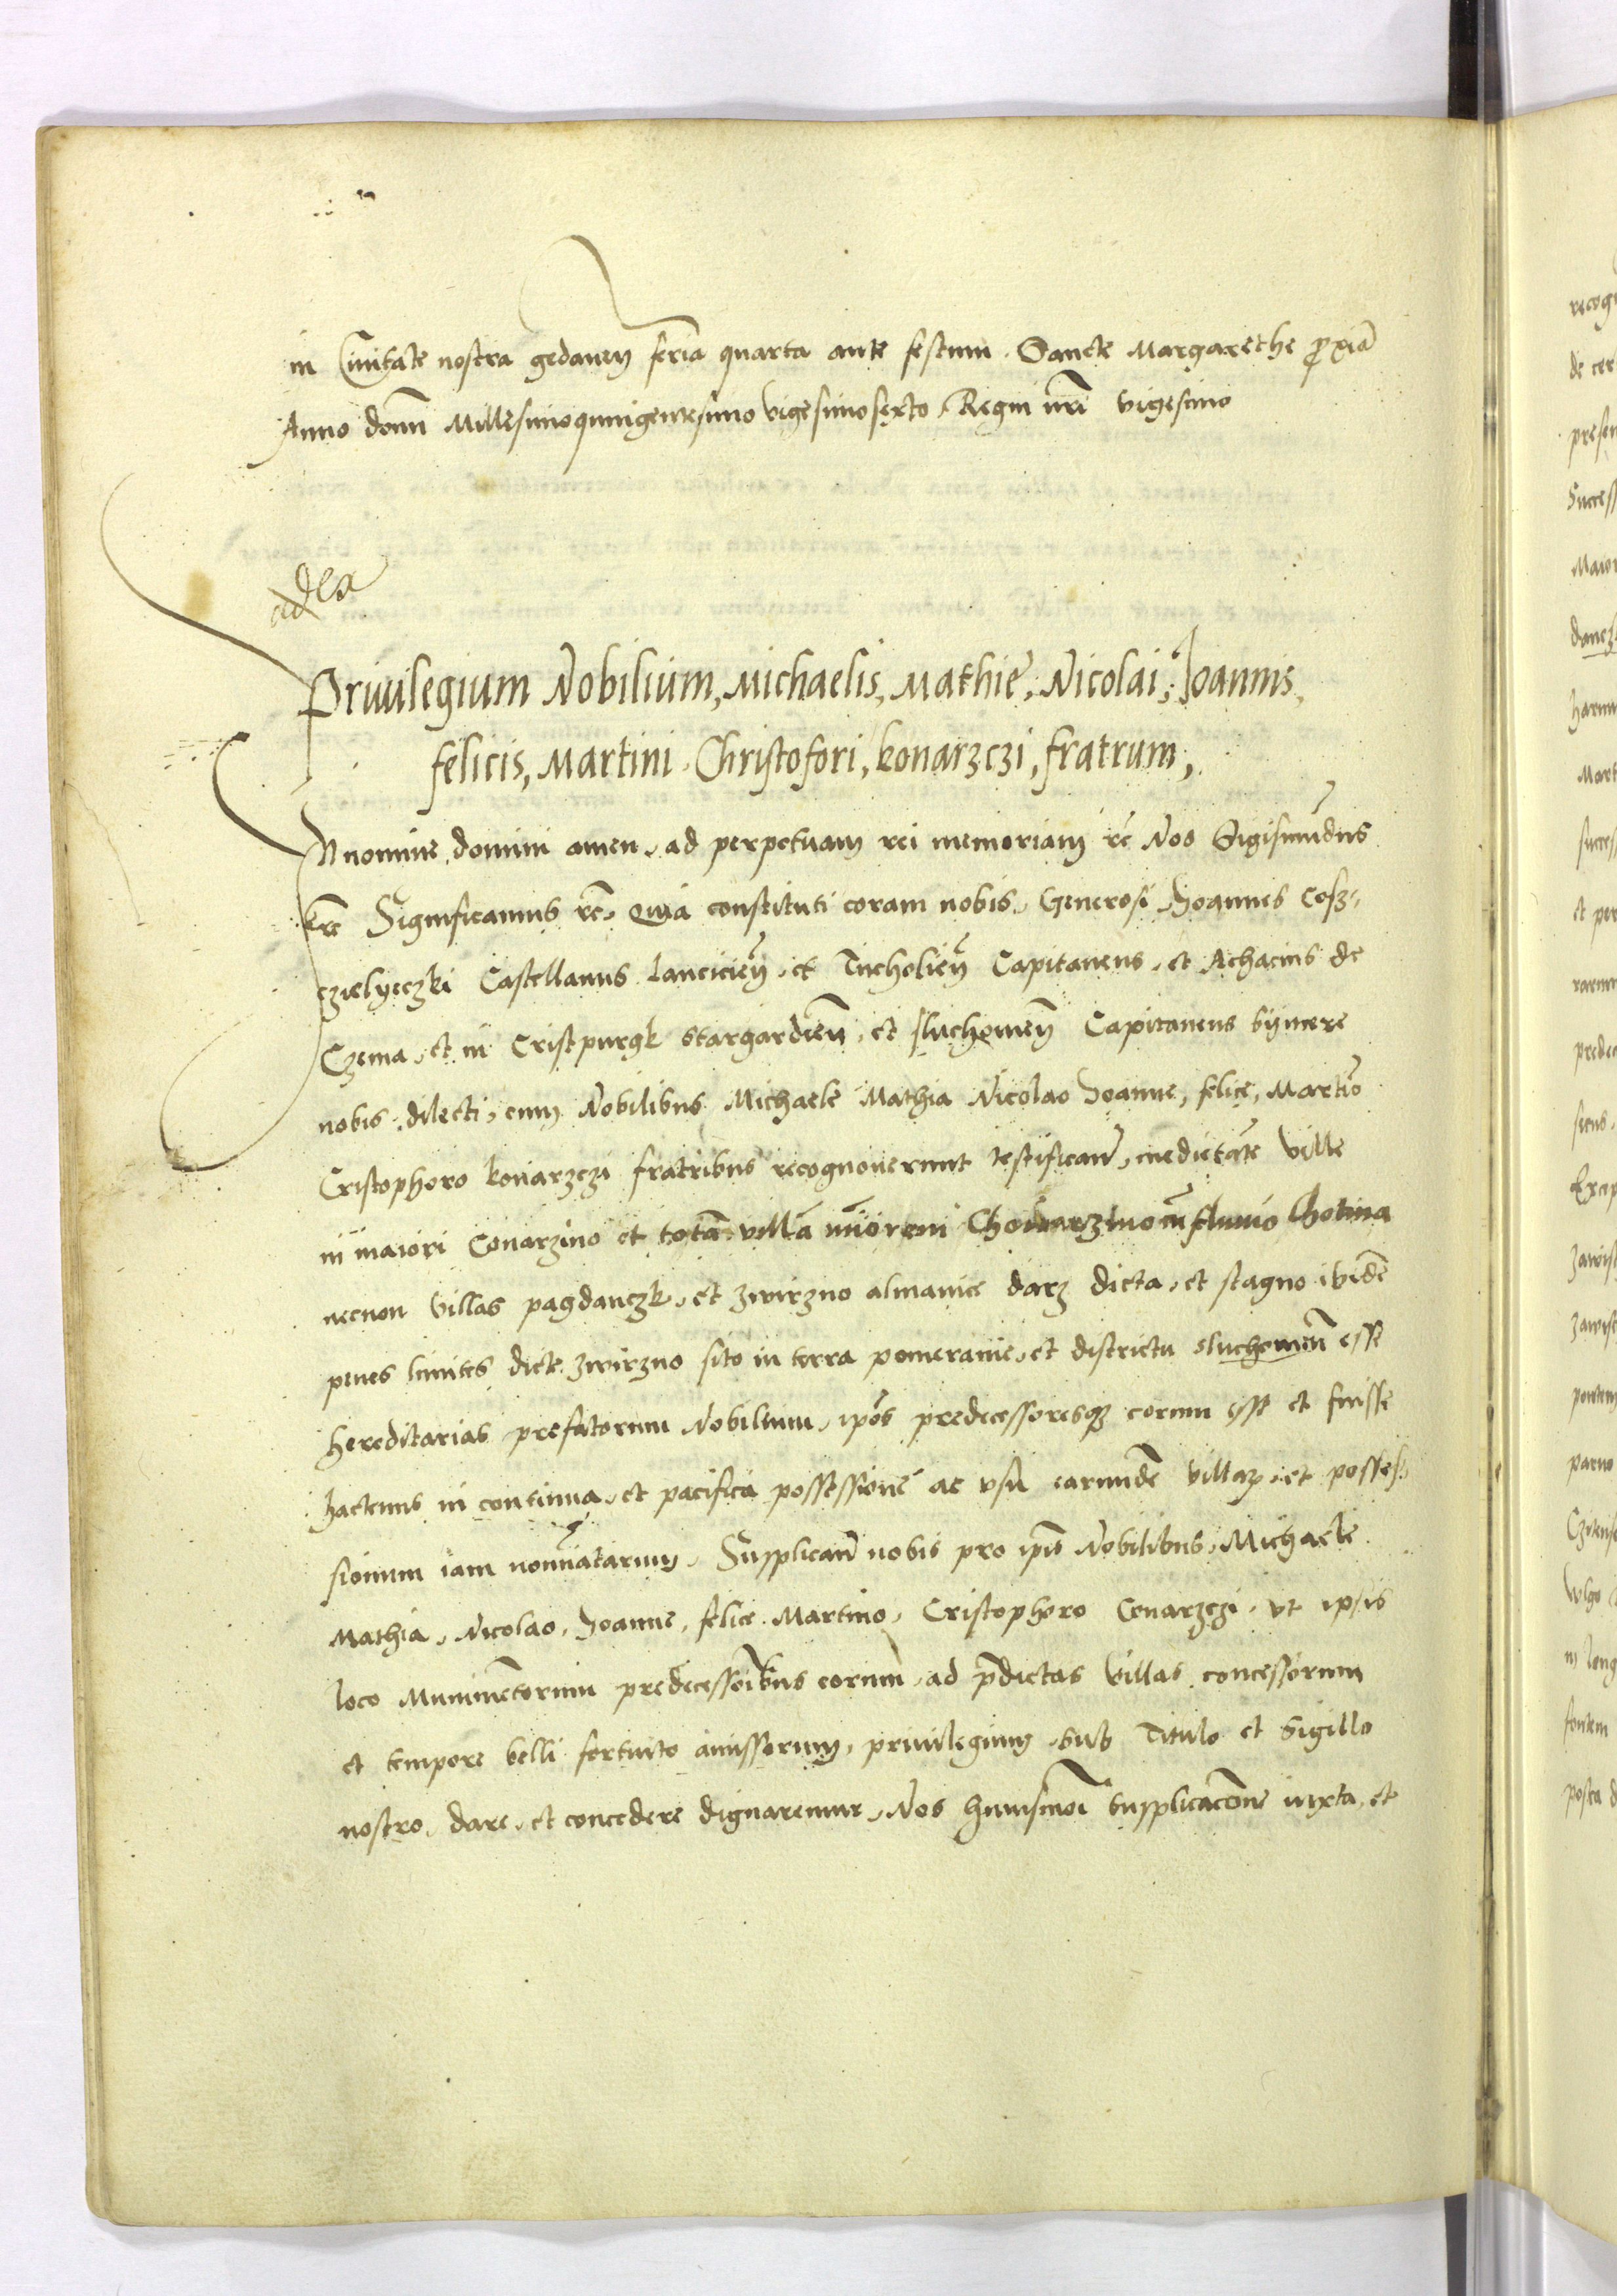 in Ciuitate nostra gedanen̄ feria quarta ante festum Sancte Margarethe ꝓxia
Anno domī Millesimoquingentesimo vigesimosexto, Regni nr̄i vigesimo
Priuilegium Nobilium, Michaelis, Mathie, Nicolai, Joannis,
felicis, Martini Christofori, konarzczi, fratrum,
IN nomine domini amen, ad perpetuam rei memoriam rc̄ Nos Sigismūdus
Significamus rc̄, quia constituti coram nobis, Generosi Joannes Cosz-
czielyeczki Castellanus Lancicien̄, et Tucholien̄ Capitaneus, et Achacius de
Czema, et in Cristpurgk stargardien̄, et sluchowien̄ Capitaneus syncere
nobis dilecti, cum Nobilibus Michaele Mathia Nicolao Joanne, felice, Martīo
Cristophoro konarzczi fratribus recognouerunt testifican̄, medietate ville
in maiori Conarzino et totā villā mīorem Chonarzino cū fluuio Chotina
necnon villas pagdanczk, et zwirzno almanice darz dicta, et stagno ibidē
penes limites dicte zwirzno sito in terra pomeranie, et districtu sluchowien̄ esse
hereditarias prefatorum Nobilium, ip̄os predecessoresq₃ eorum esse et fuisse
hactenus in continua, et pacifica possessione ac vsu earundē villaꝝ, et posses-
sionum iam nominatarum, Supplican̄ nobis pro ip̄is Nobilibus, Michaele
Mathia, Nicolao, Joanne, felice Martino, Cristophoro Conarzczi, vt ipsis
loco Munimētorum predecessorībus eorum, ad p̄dictas villas concessorum
et tempore belli fortuito amissorum, priuilegium sub Titulo et Sigillo
nostro, dare, et concedere dignaremur, Nos huiusmōi supplicacōne iuxta, et